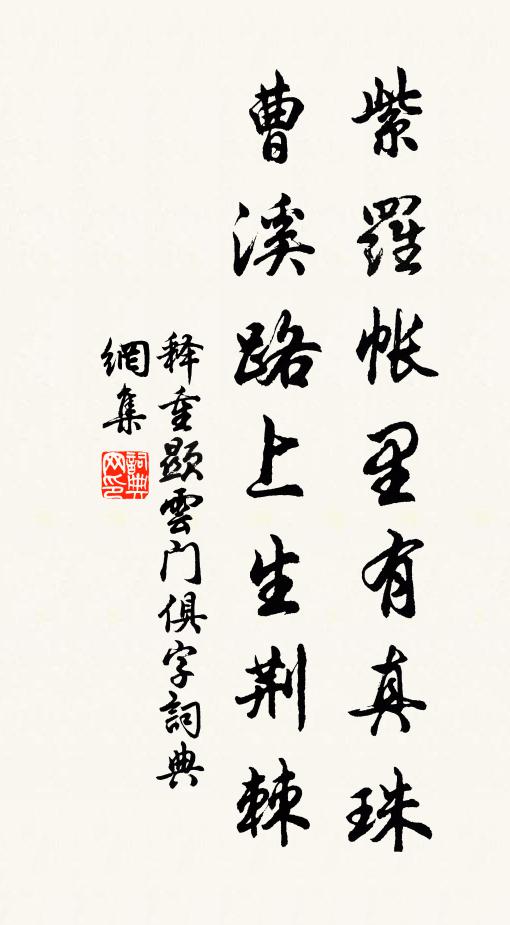 紫羅帳里有真珠
曹溪路上生荆棘
释重顯雲门俱字詞典
網集
詞典網印